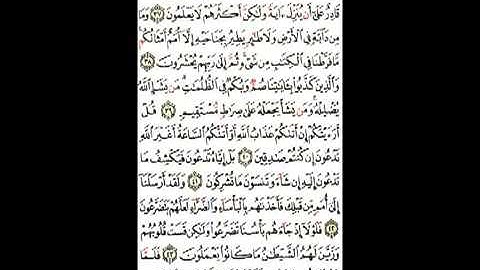 قَادِرٌ عَلَىٰ أَن يُنَزِّلَ ءَايَةً وَلَٰكِنَّ أَكْثَرَهُمْ لَا يَعْلَمُونَ ﴿٣٧﴾ وَمَا
مِن دَآبَّةٍ فِى الْأَرْضِ وَلَا طَٰٓئِرٍ يَطِيرُ بِجَنَاحَيْهِ إِلَّآ أُمَمٌ أَمْثَالُكُم
مَّا فَرَّطْنَا فِى الْكِتَٰبِ مِن شَىْءٍ ثُمَّ إِلَىٰ رَبِّهِمْ يُحْشَرُونَ ﴿٣٨﴾
وَالَّذِينَ كَذَّبُوا۟ بِـَٔايَٰتِنَا صُمٌّ وَبُكْمٌ فِى الظُّلُمَٰتِ مَن يَشَإِ اللَّهُ
يُضْلِلْهُ وَمَن يَشَأْ يَجْعَلْهُ عَلَىٰ صِرَٰطٍ مُّسْتَقِيمٍ ﴿٣٩﴾ قُلْ
أَرَءَيْتَكُمْ إِنْ أَتَىٰكُمْ عَذَابُ اللَّهِ أَوْ أَتَتْكُمُ السَّاعَةُ أَغَيْرَ اللَّهِ
تَدْعُونَ إِن كُنتُمْ صَٰدِقِينَ ﴿٤٠﴾ بَلْ إِيَّاهُ تَدْعُونَ فَيَكْشِفُ مَا
تَدْعُونَ إِلَيْهِ إِن شَآءَ وَتَنسَوْنَ مَا تُشْرِكُونَ ﴿٤١﴾ وَلَقَدْ أَرْسَلْنَآ
إِلَىٰٓ أُمَمٍ مِّن قَبْلِكَ فَأَخَذْنَٰهُم بِالْبَأْسَآءِ وَالضَّرَّآءِ لَعَلَّهُمْ يَتَضَرَّعُونَ
﴿٤٢﴾ فَلَوْلَآ إِذْ جَآءَهُم بَأْسُنَا تَضَرَّعُوا۟ وَلَٰكِن قَسَتْ قُلُوبُهُمْ
وَزَيَّنَ لَهُمُ الشَّيْطَٰنُ مَا كَانُوا۟ يَعْمَلُونَ ﴿٤٣﴾ فَلَمَّا